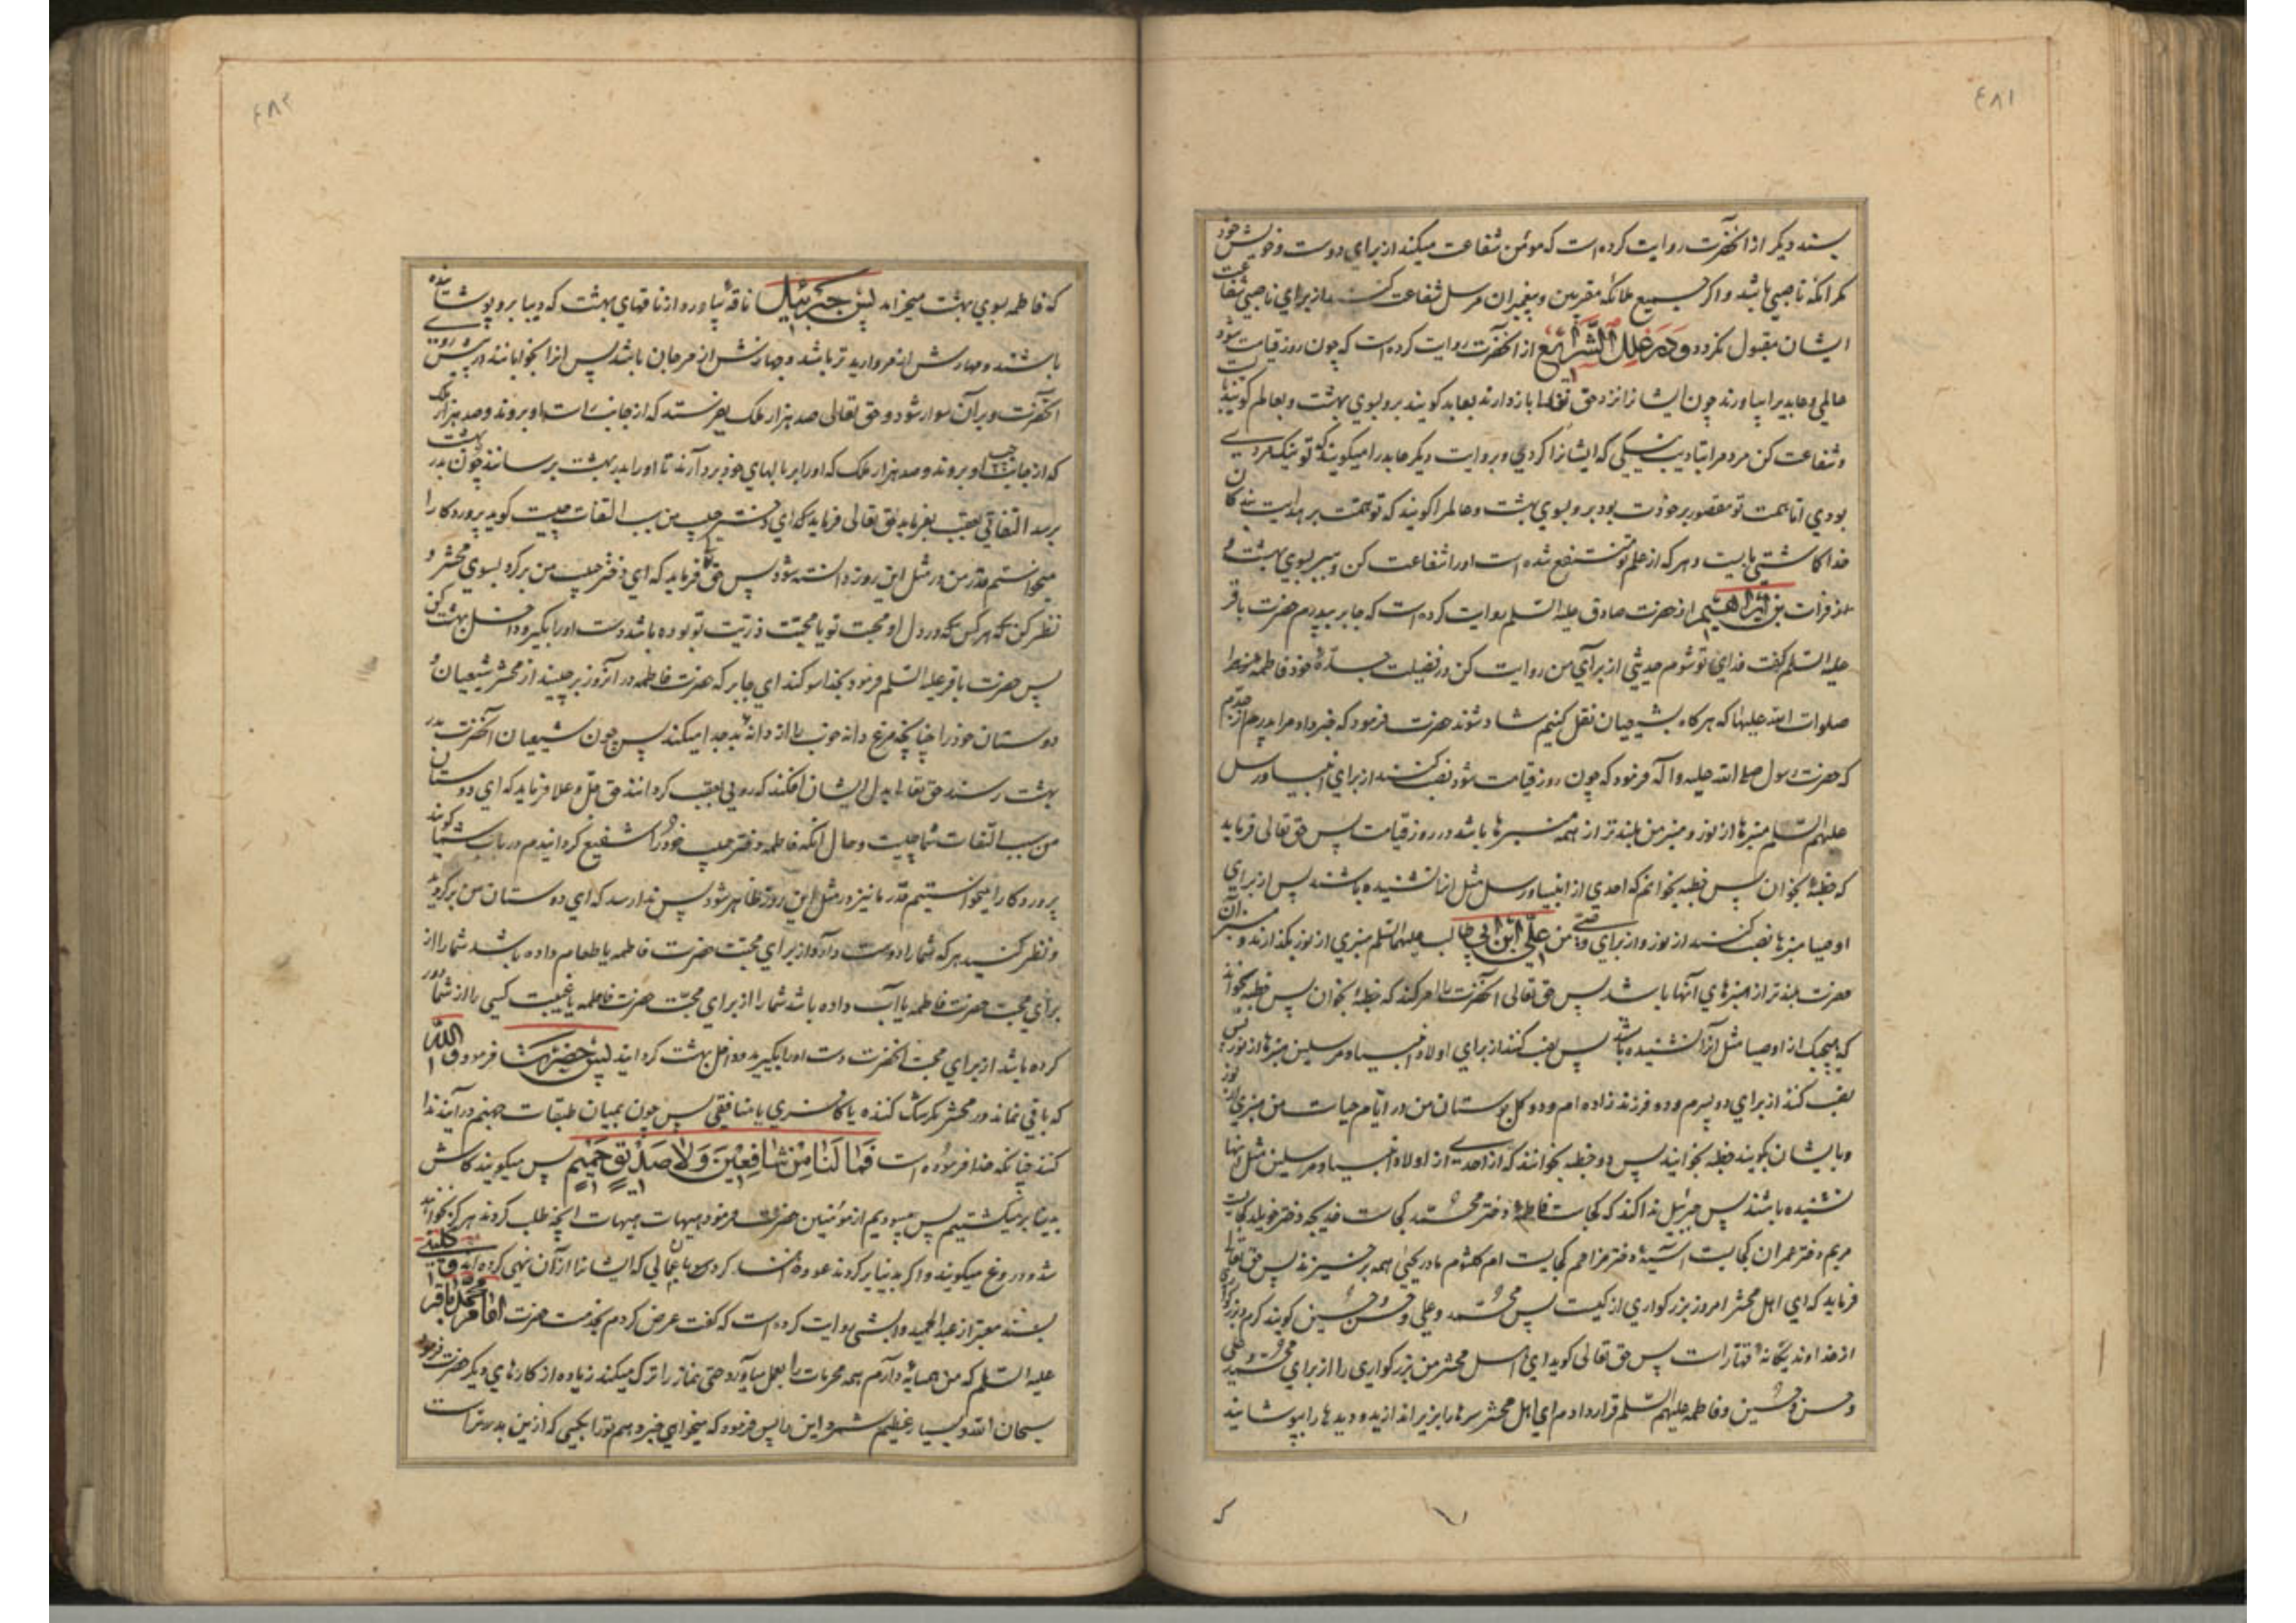 ٤٨١
بسند دیگر از انحضرت روایت کرده است که مؤمن شفاعت میکند از برای دوست و خویش خود
مکر انکه ناصبی باشد و اکر جمیع ملائکه مقربین و پیغمبران مرسل شفاعت کنند از برای ناصبی شفاعت
ایشان مقبول نکردد و در علل الشرایع از انحضرت روایت کرده است که چون روز قیامت شود
عالمی و عابدیرا بیاورند چون ایشانرا نزد حق تعالی بازدارند بعابد کویند برو بسوی بهشت و بعالم کویند بایست
و شفاعت کن مردمرا بتادیب نیکی که ایشانرا کردی و بروایت دیکر عابدرا میکویند که تو نیک مردی
بودی اما همت تو مقصور بر خودت بود برو بسوی بهشت و عالمرا کویند که تو همت بر هدایت بندکان
خدا کاشتی بایست و هر که از علم تو منتفع شده است او را شفاعت کن و ببر بسوی بهشت و
از فرات بن ابراهیم از حضرت صادق علیه السلم روایت کرده است که جابر بپدرم حضرت باقر
علیه السلم کفت فدای تو شوم حدیثی از برای من روایت کن در فضیلت جده خود فاطمه زهرا
صلوات الله علیها که هرکاه بشیعیان نقل کنیم شاد شوند حضرت فرمود که خبر داد مرا پدرم از جدم
که حضرت رسول صلی الله علیه و آله فرمود که چون روز قیامت شود نصب کنند از برای انبیا و رسل
علیهم السلم منبرها از نور و منبر من بلندتر از همه منبرها باشد در روز قیامت پس حق تعالی فرماید
که خطبه بخوان پس خطبه بخوانم که احدی از انبیا و رسل مثل انرا نشنیده باشند پس از برای
اوصیا منبرها نصب کنند از نور و از برای وصی من علی ابن ابی طالب علیهما السلم منبری از نور بکذارند و منبر آن
حضرت بلندتر از منبرهای آنها باشد پس حق تعالی آنحضرت را امر کند که خطبه بخوان پس خطبه بخواند
که هیچیک از اوصیا مثل آنرا نشنیده باشد پس نصب کنند از برای اولاد انبیا و مرسلین منبرها از نور پس
نصب کنند از برای دو پسرم و دو فرزند زاده ام و دو کل بوستان من در ایام حیات من منبری از نور
و بایشان بکویند خطبه بخوانید پس دو خطبه بخوانند که از احدی از اولاد انبیا و مرسلین مثل انها
نشنیده باشند پس جبرئیل ندا کند که کجاست فاطمه دختر محمد کجاست خدیجه دختر خویلد کجاست
مریم دختر عمران کجاست آسیه دختر مزاحم کجاست ام کلثوم مادر یحیی همه برخیزند پس حق تعالی
فرماید که ای اهل محشر امروز بزرکواری از کیست پس محمد و علی و حسن و حسین کویند کرم و بزرکواری
از خداوند یکانه قهار است پس حق تعالی کوید ای اهل محشر من بزرکواری را از برای محمد و علی
و حسن و حسین و فاطمه علیهم السلم قرار دادم ای اهل محشر سرها را بزیر اندازید و دیدها را بپوشانید
که
٤٨٢
که فاطمه بسوی بهشت میخرامد پس جبرئیل ناقه بیاورد از ناقهای بهشت که دیبا برو پوشانیده
باشند و مهارش از مروارید تر باشد و جهازش از مرجان باشد پس انرا بخوابانند در پیش روی
انحضرت و بر آن سوار شود و حق تعالی صد هزار ملک بفرستد که از جانب راست او بروند و صد هزار ملک
که از جانب چپ او بروند و صد هزار ملک که او را بر بالهای خود بردارند تا او را بدر بهشت برسانند چون بدر بهشت
برسد التفاتی بعقب بفرماید حق تعالی فرماید که ای دختر حبیب من سبب التفات چیست کوید پروردکارا
میخواستم قدر من در مثل این روز دانسته شود پس حق تعالی فرماید که ای دختر حبیب من برکرد بسوی محشر و
نظر کن که هر کس که در دل او محبت تو یا محبت ذریت تو بوده باشد دست او را بکیر و داخل بهشت کن
پس حضرت باقر علیه السلم فرمود بخدا سوکند ای جابر که حضرت فاطمه در انروز برچیند از محشر شیعیان و
دوستان خود را چنانچه مرغ دانه خوب را از دانه بد جدا میکند پس چون شیعیان آنحضرت بدر
بهشت رسند حق تعالی بدل ایشان افکند که روی بعقب کردانند حق جل و علا فرماید که ای دوستان
من سبب التفات شما چیست و حال آنکه فاطمه دختر حبیب خود را شفیع کردانیدم در باب شما کویند
پروردکارا میخواستیم قدر ما نیز در مثل این روز ظاهر شود پس ندا رسد که ای دوستان من برکردید
و نظر کنید هر که شما را دوست دارد از برای محبت حضرت فاطمه یا طعام داده باشد شما را از
برای محبت حضرت فاطمه یا آب داده باشد شما را از برای محبت حضرت فاطمه یا غیبت کسی را از شما دور
کرده باشد از برای محبت انحضرت دست او را بکیرید و داخل بهشت کردانید پس حضرت فرمود و الله
که باقی نماند در محشر مکر شک کننده یا کافری یا منافقی پس چون بمیان طبقات جهنم در آیند ندا
کنند چنانکه خدا فرموده است فَمَا لَنَا مِنْ شَافِعِينَ وَلَا صَدِيقٍ حَمِيمٍ پس میکویند کاش
بدنیا بر میکشتیم پس میبودیم از مؤمنین حضرت فرمود هیهات هیهات انچه طلب کردند هرکز نخواهد
شد و دروغ میکویند و اکر بدنیا برکردند عود خواهند کردن باعمالی که ایشانرا از آن نهی کرده اند و کلینی
بسند معتبر از عبدالحمید وابشی روایت کرده است که کفت عرض کردم بخدمت حضرت امام محمد باقر
علیه السلم که من همسایه دارم همه محرمات را بعمل میآورد حتی نماز را ترک میکند زیاده از کارهای دیکر حضرت فرمود
سبحان الله و بسیار عظیم شمرد این را پس فرمود که میخواهی خبر دهم تورا بکسی که ازین بدتر است